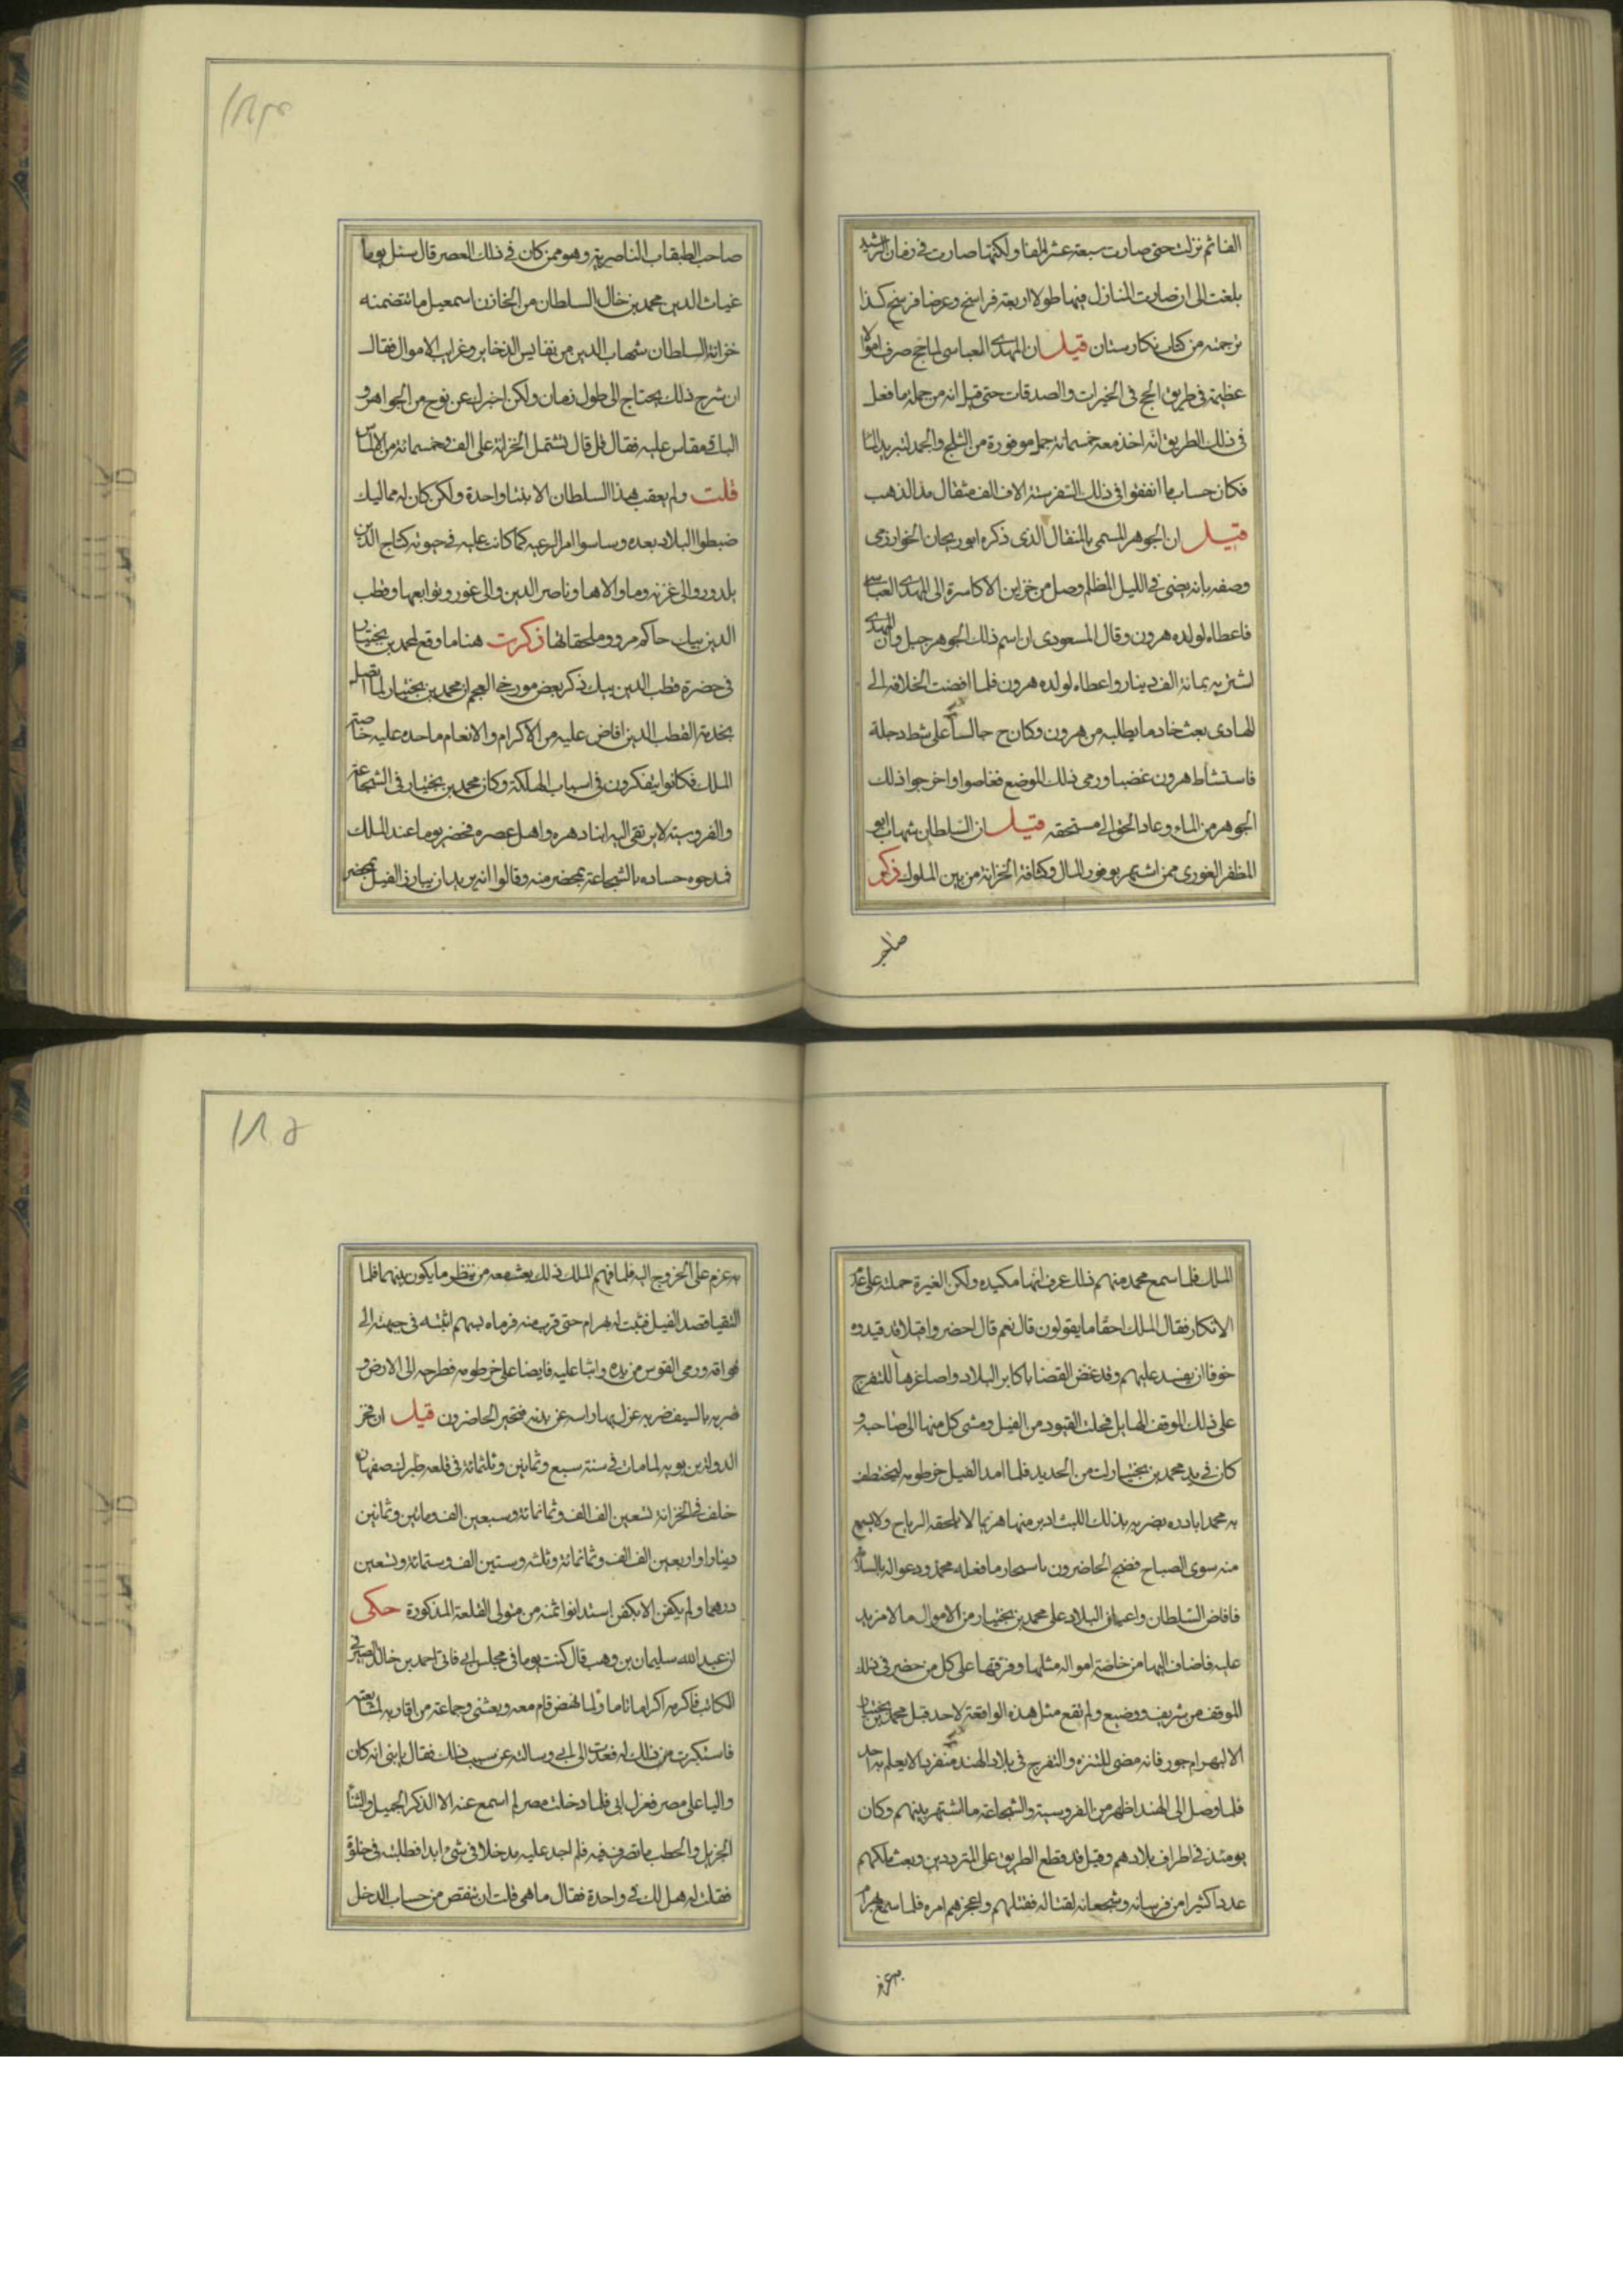 الفا ثم نزلت حتى صارت سبعة عشر الفا ولكنها صارت في زمان الرشيد
بلغت الى ان صارت المنازل فيها طولا اربعة فراسخ وعرضا فرسخ كذا
ترجمته من كتاب نكارستان قيل ان المهدى العباسى لما حج صرف اموالا
عظيمة في طريق الحج في الخيرات والصدقات حتى قيل انه من جملة ما فعل
في ذلك الطريق انه اخذ معه خمسمائة جمل موفورة من الثلج والجمد لتبريد الماء
فكان حساب ما انفقوا في ذلك السفر ستة الاف الف مثقال من الذهب
قيل ان الجوهر المسمى بالمثقال الذى ذكره ابوريحان الخوارزمى
وصفه بانه يضئ في الليل المظلم وصل من خزاين الاكاسرة الى المهدى العباسى
فاعطاه لولده هرون وقال المسعودى ان اسم ذلك الجوهر جبل وان المهدى
اشتريه بمائة الف دينار واعطاه لولده هرون فلما افضت الخلافة الى
الهادى بعث خادما يطلبه من هرون وكان ح جالسا على شط دجلة
فاستشاط هرون غضبا ورمى ذلك الموضع فغاصوا واخرجوا ذلك
الجوهر من الماء وعاد الحق الى مستحقه قيل ان السلطان شهاب ابو
المظفر الغورى ممن اشتهر بوفور المال وكثافة الخزانة من بين الملوك ذكر
صاحب
صاحب الطبقات الناصرية وهو ممن كان في ذلك العصر قال سئل يوما
غياث الدين محمد بن خال السلطان من الخازن اسمعيل ما تتضمنه
خزانة السلطان شهاب الدين من نفايس الذخاير وغرايب الاموال فقال
ان شرح ذلك يحتاج الى طول زمان ولكن اخبرك عن نوع من الجواهر و
الباقى مقاس عليه فقال قل قال تشتمل الخزانة على الف وخمسمائة من الالماس
قلت ولم يعقب هذا السلطان الا بنتا واحدة ولكن كان له مماليك
ضبطوا البلاد بعده وساسوا امر الرعية كما كانت عليه في حيوته كتاج الدين
يلدوز والى غزنه وما والاها وناصر الدين والى غور وتوابعها وقطب
الدين بيك حاكم مرو وملحقاتها ذكرت هنا ما وقع لمحمد بن بختيار
في حضرة قطب الدين بيك ذكر بعض مورخى العجم ان محمد بن بختيار لما اتصل
بخدمة القطب الدين افاض عليه من الاكرام والانعام ما حده عليه خاصة
الملك فكانوا يتفكرون في اسباب الهلكة وكان محمد بن بختيار في الشجاعة
والفروسية لا يرتقى اليه ابناء دهره واهل عصره فحضر يوما عند الملك
فمدحوه حساده بالشجاعة بمحضر منه وقالوا انه يريد ان يبارز الفيل بمحضر
الملك فلما سمع محمد منهم ذلك عرف انها مكيده ولكن الغيرة حملته على عدم
الانكار فقال الملك احقا ما يقولون قال نعم قال احضروا فيلا قد قيدوه
خوفا ان يفسد عليهم وقد غض القضا باكابر البلاد واصاغرها للتفرج
على ذلك الموقف الهايل فحلت القيود من الفيل ومشى كل منها الى صاحبه و
كان في يد محمد بن بختيار لت من الحديد فلما امد الفيل خرطومه ليختطف
به محمدا بادره بضربة بذلك اللت ادبر منها هزيما لا تلحقه الرياح ولا يسمع
منه سوى الصياح فضج الحاضرون باسحار ما فعله محمد ودعوا له بالسلامة
فافاض السلطان واعيان البلاد على محمد بن بختيار من الاموال ما لا مزيد
عليه فاضاف اليها من خاصة امواله مثلها وفرقها على كل من حضر في ذلك
الموقف من شريف ووضيع ولم تقع مثل هذه الواقعة لاحد قبل محمد بن بختيار
الا لبهرام جور فانه مضى للتنزه والتفرج في بلاد الهند منفردا لا يعلم به احد
فلما وصل الى الهند اظهر من الفروسية والشجاعة ما اشتهر بينهم وكان
يومئذ في اطراف بلادهم وفيل قد قطع الطريق على المترددين وبعث ملكهم
عددا كثيرا من فرسانه وشجعانه لقتاله فقتلهم واعجزهم امره فلما سمع بهرام
به عزم
به عزم على الخروج اليه فلما فهم الملك ذلك بعث معه من ينظر ما يكون بينهما فلما
التقيا قصد الفيل فثبت له بهرام حتى قرب منه فرماه بسهم اثبته في جبهته الى
فواقه ورمى القوس من يده واثبا عليه قابضا على خرطومه فطرحه الى الارض و
ضربه بالسيف ضربة عزل بها راسه عن بدنه فتحير الحاضرون قيل ان فخر
الدولة بن بويه لما مات في سنة سبع وثمانين وثلثمائة في قلعة طبرك اصفهان
خلف في الخزانة تسعين الف الف وثمانمائة وسبعين الف ومائتين وثمانين
دينارا واربعين الف الف وثمانمائة وثلثه وستين الف وستمائة وتسعين
درهما ولم يكفن الا بكفن استدانوا ثمنه من متولى القلعة المذكورة حكى
ان عبد الله سليمان بن وهب قال كنت يوما في مجلس ابى فاتى احمد بن خالد الصيرفى
الكاتب فاكرمه اكراما تاما ولما نهض قام معه وبعثنى وجماعة من اقاربه لمشايعته
فاستكبرت من ذلك له فعدت الى ابى وسالته عن سبب ذلك فقال يا بنى انه كان
واليا على مصر فعزل ابى فلما دخلت مصر لم اسمع عنه الا الذكر الجميل والثناء
الجزيل والحطب ما تصرف فيه فلم اجد عليه مدخلا في شئ ابدا فطلبته في خلوة
فقلت له هل لك في واحدة فقال ما هى قلت ان تنقص من حساب الدخل